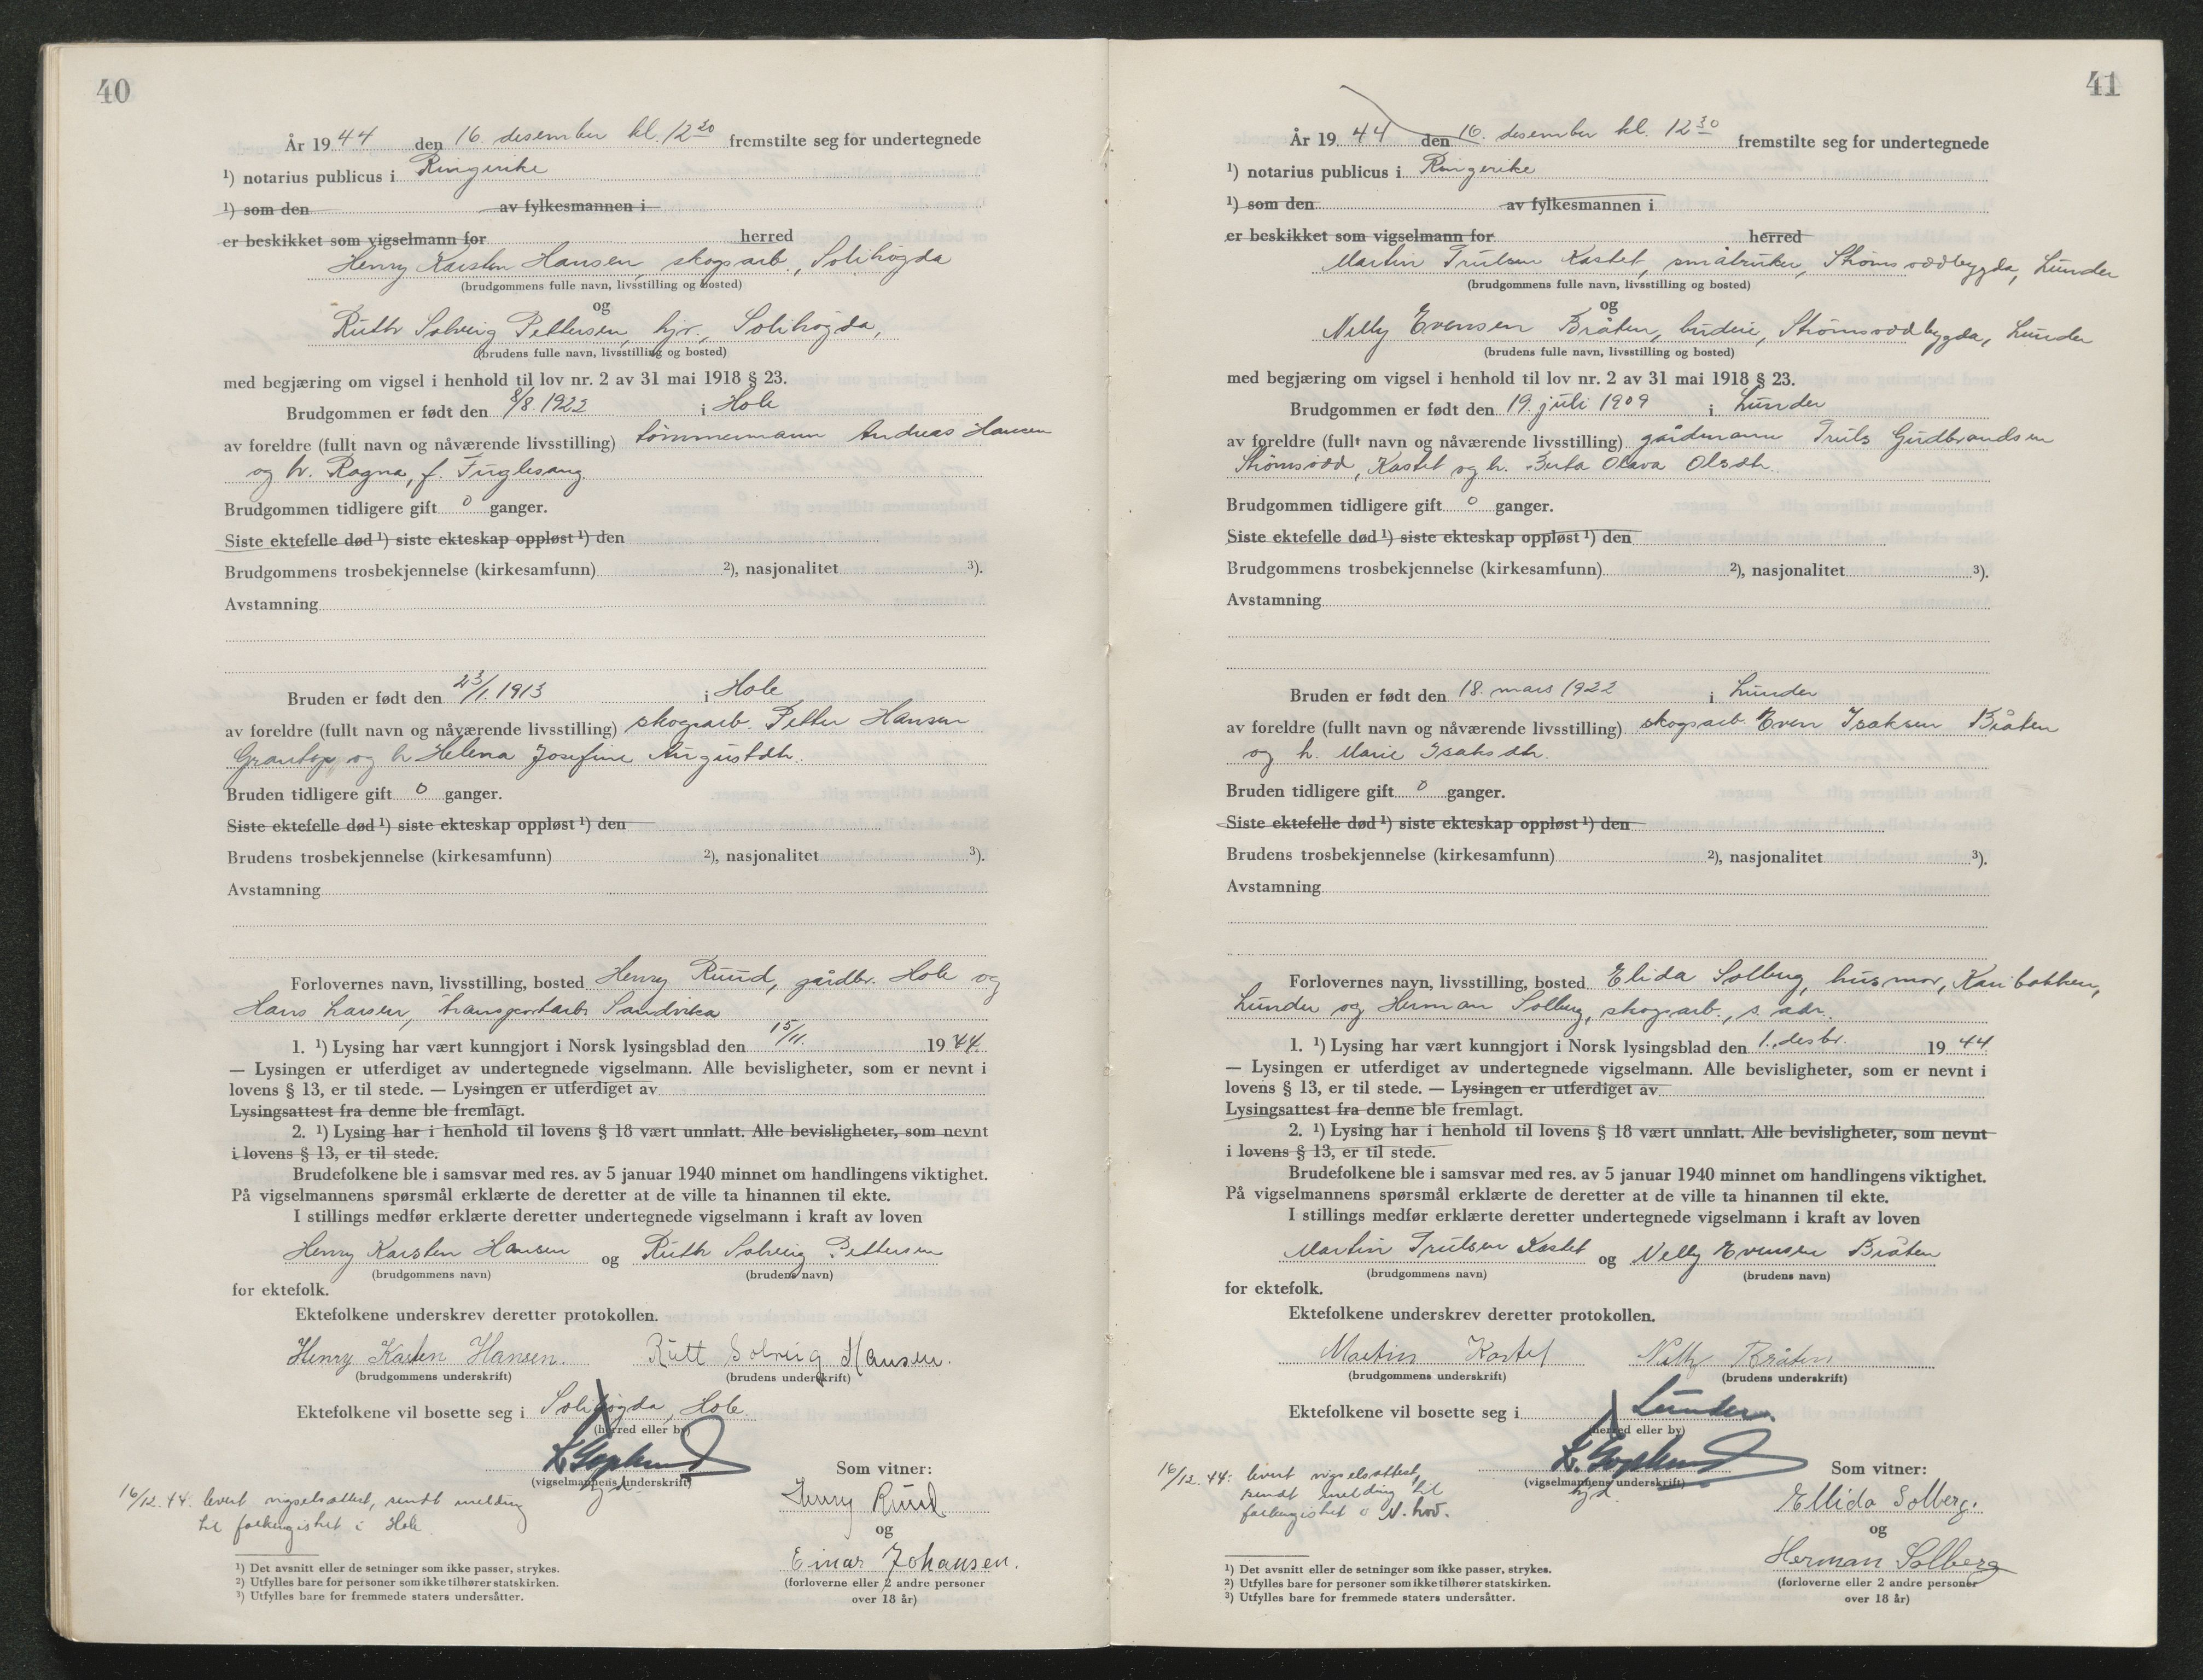 40
År 1944 den 16. desember kl. 12 30 fremstilte seg for undertegnede
¹) notarius publicus i Ringerike
¹) som den av fylkesmannen i
er beskikket som vigselmann for herred
Henry Karsten Hansen, skogsarb., Solihøgda
(brudgommens fulle navn, livsstilling og bosted)
og
Ruth Solveig Pettersen, hjv., Solihøgda,
(brudens fulle navn, livsstilling og bosted)
med begjæring om vigsel i henhold til lov nr. 2 av 31 mai 1918 § 23.
Brudgommen er født den 8/8. 1922 i Hole
av foreldre (fullt navn og nåværende livsstilling) tømmermann Andreas Hansen
og h. Ragna, f. Fuglesang
Brudgommen tidligere gift 0 ganger.
Siste ektefelle død ¹) siste ekteskap oppløst ¹) den
Brudgommens trosbekjennelse (kirkesamfunn) ²), nasjonalitet ³).
Avstamning
Bruden er født den 23/1. 1913 i Hole
av foreldre (fullt navn og nåværende livsstilling) skogsarb. Petter Hansen
Grantop og h Helena Josefine Augustdtr.
Bruden tidligere gift 0 ganger.
Siste ektefelle død ¹) siste ekteskap oppløst ¹) den
Brudens trosbekjennelse (kirkesamfunn) ²), nasjonalitet ³).
Avstamning
Forlovernes navn, livsstilling, bosted Henry Ruud, gårdbr. Hole og
Hans Larsen, transportarb. Sandvika
1. ¹) Lysing har vært kunngjort i Norsk lysingsblad den 15/11. 1944.
— Lysingen er utferdiget av undertegnede vigselmann. Alle bevisligheter, som er nevnt i
lovens § 13, er til stede. — Lysingen er utferdiget av
Lysingsattest fra denne ble fremlagt.
2. ¹) Lysing har i henhold til lovens § 18 vært unnlatt. Alle bevisligheter, som nevnt
i lovens § 13, er til stede.
Brudefolkene ble i samsvar med res. av 5 januar 1940 minnet om handlingens viktighet.
På vigselmannens spørsmål erklærte de deretter at de ville ta hinannen til ekte.
I stillings medfør erklærte deretter undertegnede vigselmann i kraft av loven
Henry Karsten Hansen og Ruth Solveig Pettersen
(brudgommens navn) (brudens navn)
for ektefolk.
Ektefolkene underskrev deretter protokollen.
Henry Karsten Hansen. Rutt Solveig Hansen.
(brudgommens underskrift) (brudens underskrift)
Ektefolkene vil bosette seg i Solihøgda, Hole.
(herred eller by)
(vigselmannens underskrift)
Som vitner:
16/12.44. levert vigselsattest, sendt melding
til folkregistret i Hole.
Henry Ruud
og
Einar Johansen.
(forloverne eller 2 andre personer
over 18 år)
¹) Det avsnitt eller de setninger som ikke passer, strykes.
²) Utfylles bare for personer som ikke tilhører statskirken.
³) Utfylles bare for fremmede staters undersåtter.
41
År 1944 den 16. desember kl. 12 30 fremstilte seg for undertegnede
¹) notarius publicus i Ringerike
¹) som den av fylkesmannen i
er beskikket som vigselmann for herred
Martin Trulsen Kastet, småbruker, Strømsoddbygda, Lunder
(brudgommens fulle navn, livsstilling og bosted)
og
Nelly Evensen Bråten, budeie, Strømsoddbygda, Lunder
(brudens fulle navn, livsstilling og bosted)
med begjæring om vigsel i henhold til lov nr. 2 av 31 mai 1918 § 23.
Brudgommen er født den 19. juli 1909 i Lunder
av foreldre (fullt navn og nåværende livsstilling) gårdmann Truls Gudbrandsen
Strømsodd, Kastet og h. Berta Olava Olsdtr.
Brudgommen tidligere gift 0 ganger.
Siste ektefelle død ¹) siste ekteskap oppløst ¹) den
Brudgommens trosbekjennelse (kirkesamfunn) ²), nasjonalitet ³).
Avstamning
Bruden er født den 18. mars 1922 i Lunder
av foreldre (fullt navn og nåværende livsstilling) skogsarb. Even Isaksen Bråten
og h. Marie Isaksdtr.
Bruden tidligere gift 0 ganger.
Siste ektefelle død ¹) siste ekteskap oppløst ¹) den
Brudens trosbekjennelse (kirkesamfunn) ²), nasjonalitet ³).
Avstamning
Forlovernes navn, livsstilling, bosted Elida Solberg, husmor, Karibakken,
Lunder og Herman Solberg, skogsarb., s. adr.
1. ¹) Lysing har vært kunngjort i Norsk lysingsblad den 1. desbr. 1944
— Lysingen er utferdiget av undertegnede vigselmann. Alle bevisligheter, som er nevnt i
lovens § 13, er til stede. — Lysingen er utferdiget av
Lysingsattest fra denne ble fremlagt.
2. ¹) Lysing har i henhold til lovens § 18 vært unnlatt. Alle bevisligheter, som nevnt
i lovens § 13, er til stede.
Brudefolkene ble i samsvar med res. av 5 januar 1940 minnet om handlingens viktighet.
På vigselmannens spørsmål erklærte de deretter at de ville ta hinannen til ekte.
I stillings medfør erklærte deretter undertegnede vigselmann i kraft av loven
Martin Trulsen Kastet og Nelly Evensen Bråten
(brudgommens navn) (brudens navn)
for ektefolk.
Ektefolkene underskrev deretter protokollen.
Martin Kastet Nelly Bråten
(brudgommens underskrift) (brudens underskrift)
Ektefolkene vil bosette seg i Lunder.
(herred eller by)
(vigselmannens underskrift)
Som vitner:
16/12.44: levert vigselsattest,
sendt melding til
folkregistret i N. hov.
Ellida Solberg.
og
Herman Solberg
(forloverne eller 2 andre personer
over 18 år)
¹) Det avsnitt eller de setninger som ikke passer, strykes.
²) Utfylles bare for personer som ikke tilhører statskirken.
³) Utfylles bare for fremmede staters undersåtter.